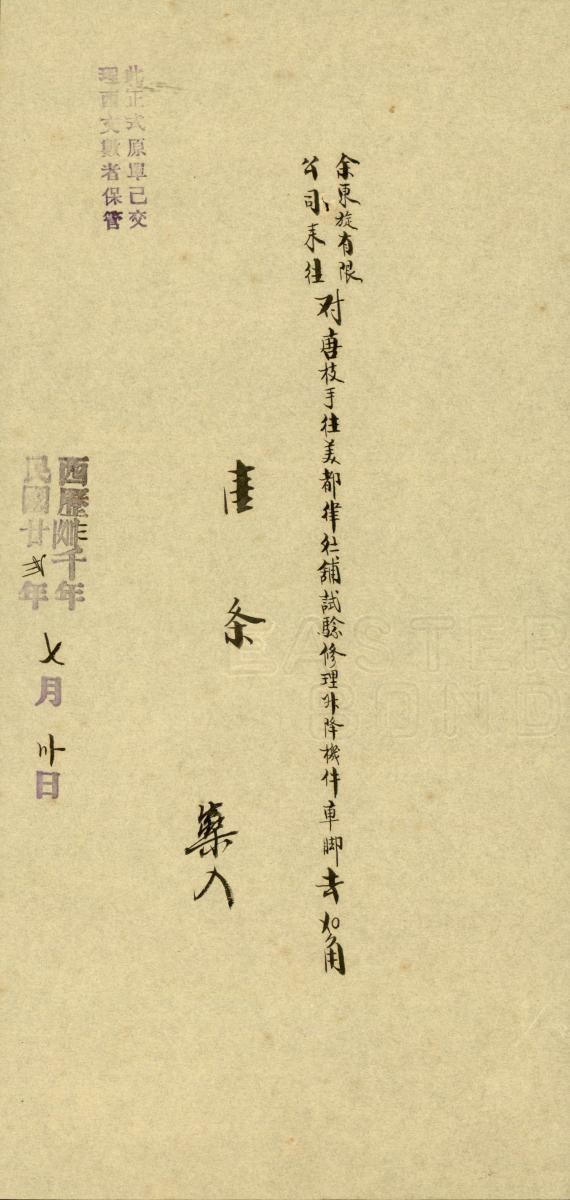 余東旋有限
公司来往
对唐枝手往美都律社舖試驗修理升降機件車脚去 角
条
入
此正式原單已交
理西文數者保管
西歷 千年
民國廿 年
七月卅日
EASTER
BOND